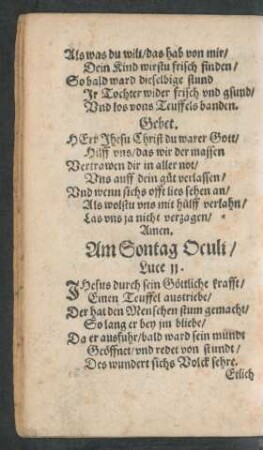 Als was du wilt/das hab von mir/
Dein Kind wirstu frisch finden/
So bald ward dieselbige stund
Ir Tochter wider frisch vnd gsund/
Vnd los vons Teuffels banden.
Gebet.
HErr Jhesu Christ du warer Gott/
Hülff vns/das wir der massen
Vertrawen dir in aller not/
Vns auff dein güt verlassen/
Vnd wenn sichs offt lies sehen an/
Als wolstu vns mit hülff verlahn/
Las vns ja nicht verzagen/
Amen.
Am Sontag Oculi/
Luce 11.
JHesus durch sein Göttliche krafft/
Einen Teuffel austriebe/
Der hat den Menschen stum gemacht/
So lang er bey jm bliebe/
Da er ausfuhr/bald ward sein mundt
Geöffnet/vnd redet von stundt/
Des wundert sichs Volck sehre.
Etlich